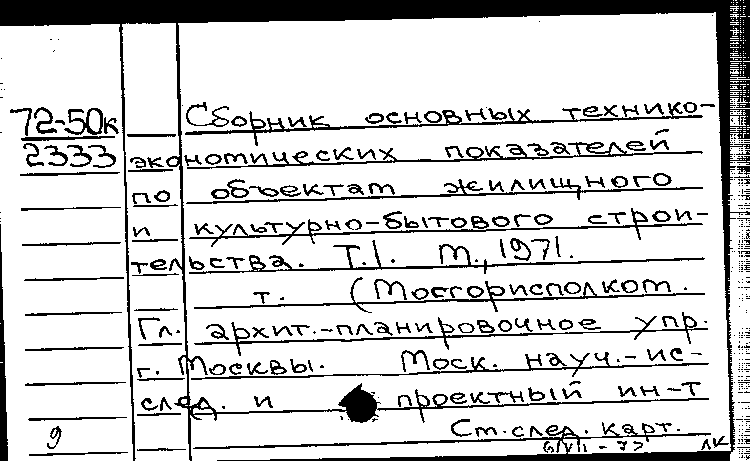 72-50к Сборник основных технико-
2333 экономических показателей
по объектам жилищного
и культурно-бытового строи-
тельства. Т.1. М., 1971.
т. (Мосгорисполком.
Гл. архит.-планировочное упр.
г. Москвы. Моск. науч.-ис-
след. и проектный ин-т
9 См. след. карт.